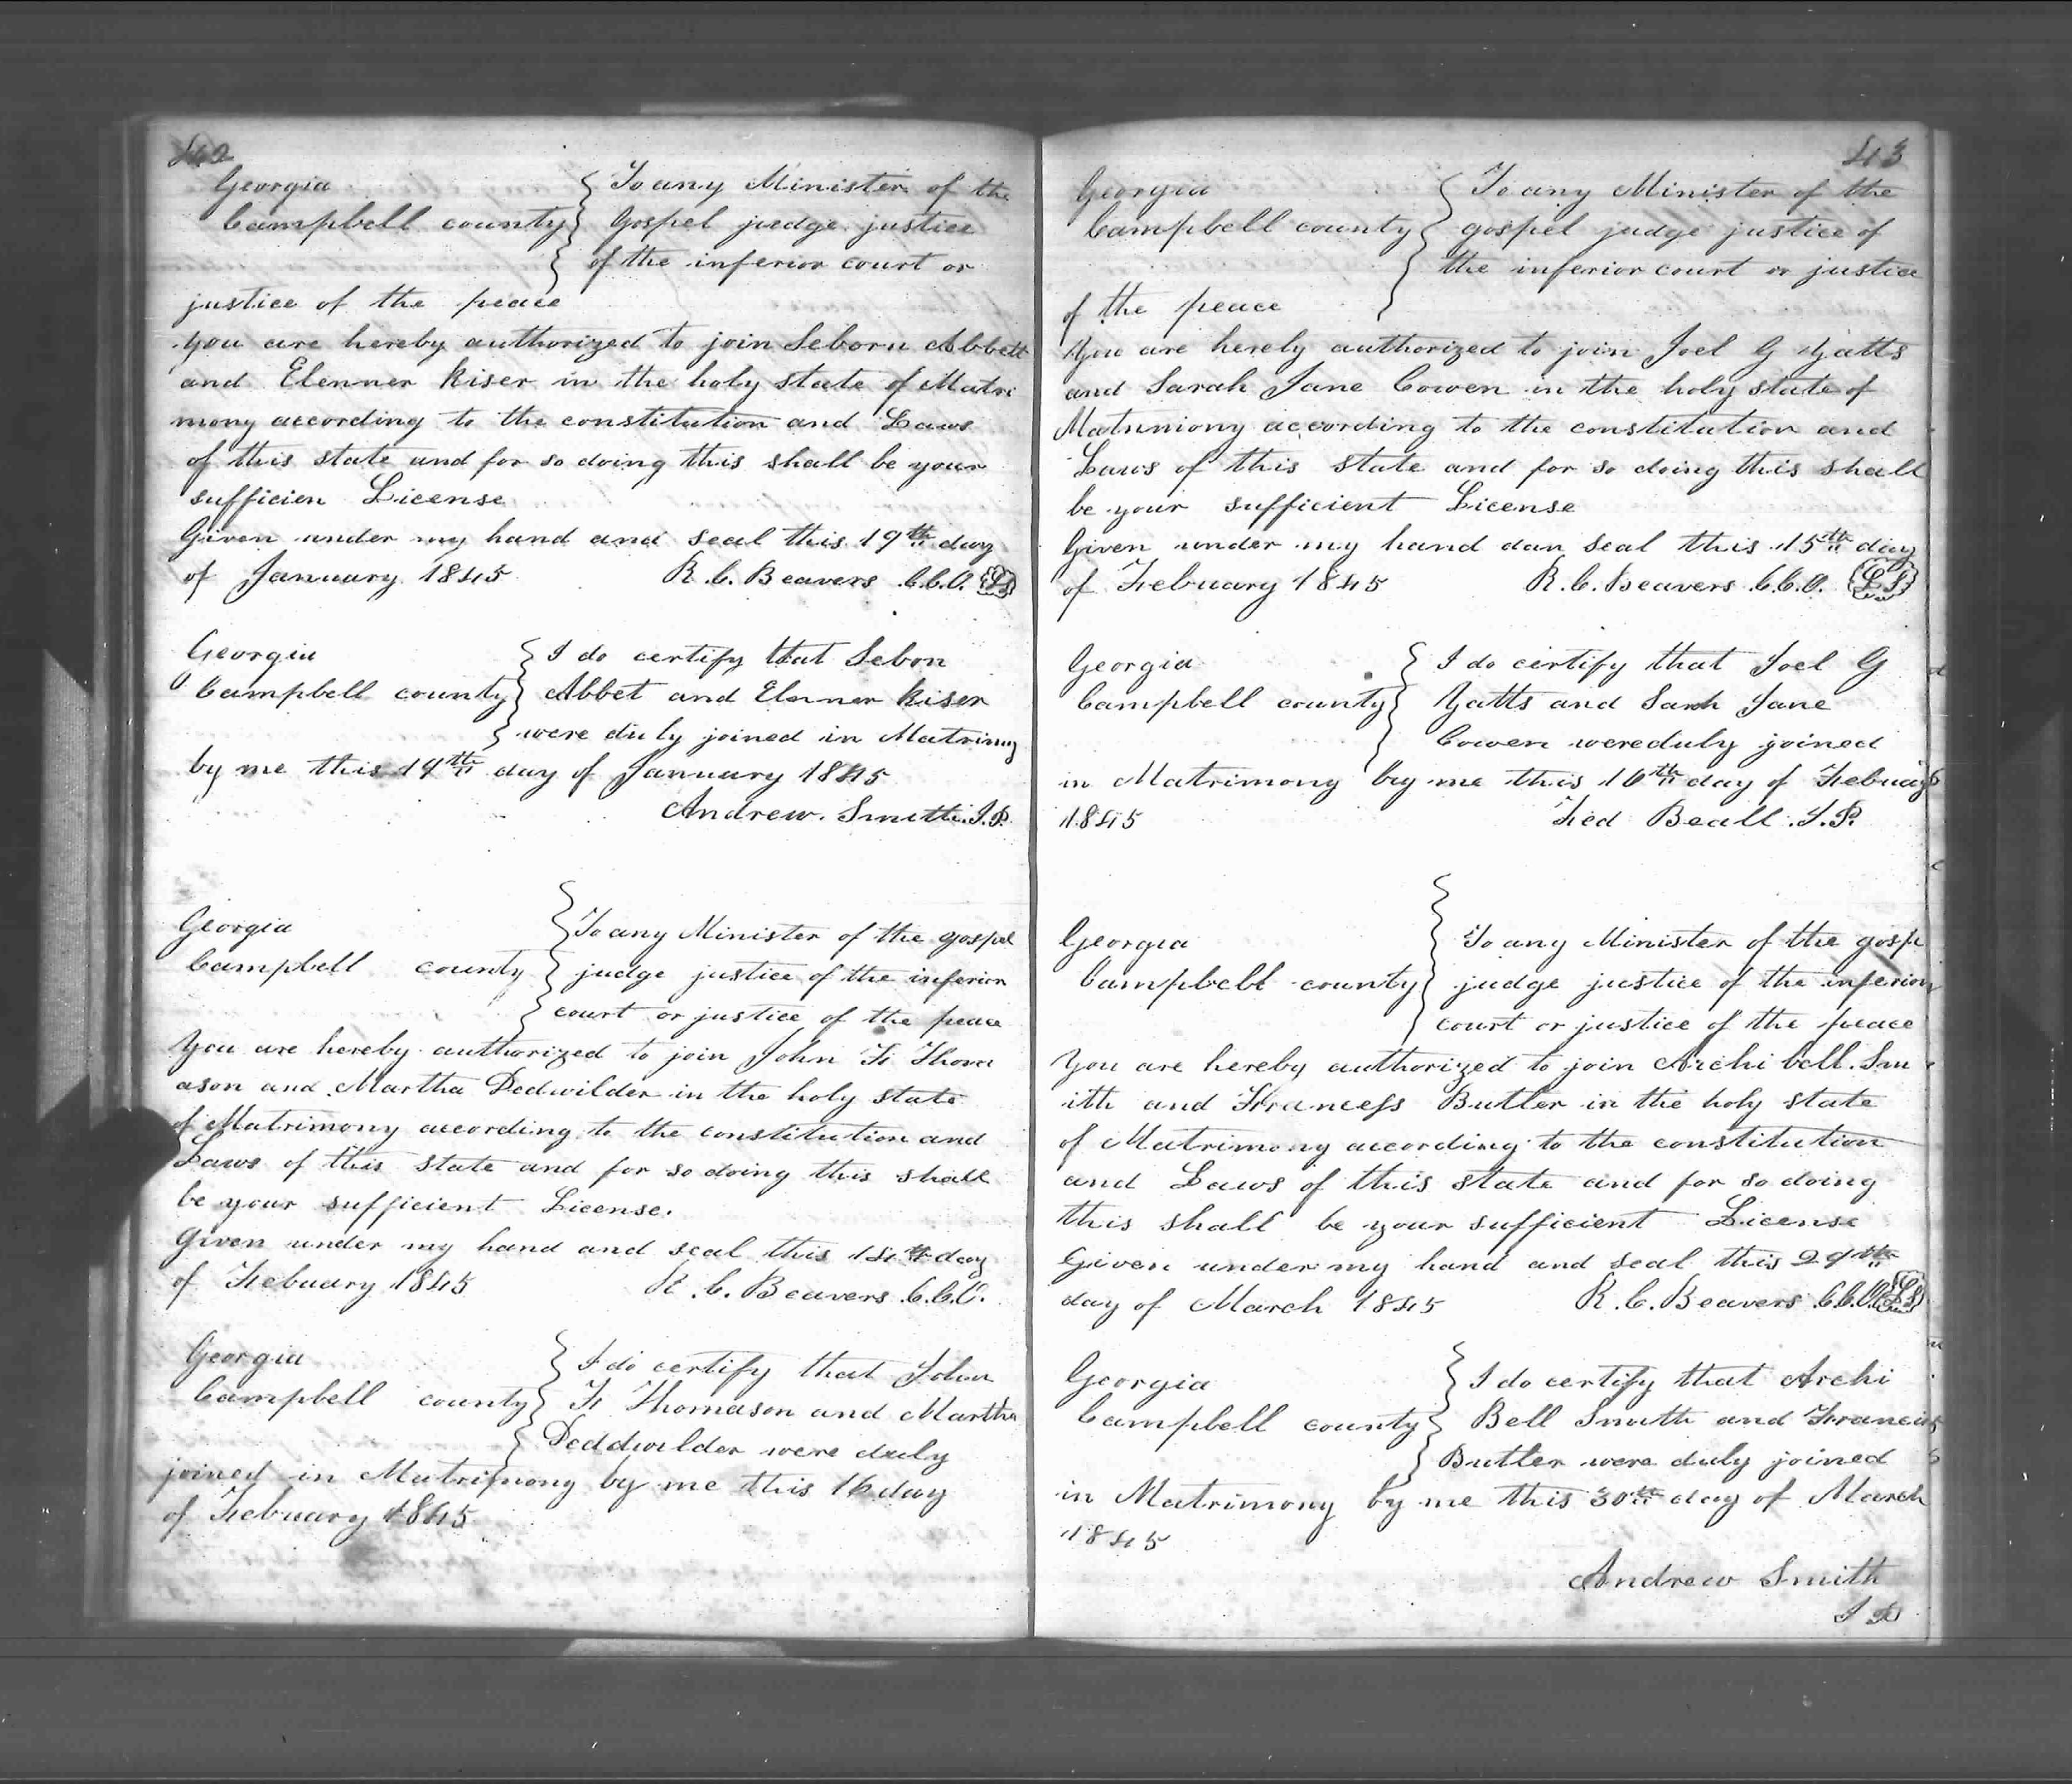 42
Georgia
Campbell county
To any Minister of the
Gospel judge justice
of the inferior court or
justice of the peace
you are hereby authorized to join Seborn Abbett
and Elenner Kiser in the holy state of Matri
mony according to the constitution and Laws
of this state and for so doing this shall be your
sufficien License
Given under my hand and seal this 19th day
of January 1845 R. C. Beavers C.C.O. LS
Georgia
Campbell county
I do certify that Sebon
Abbet and Elenner Kiser
were duly joined in Matrimy
by me this 19th day of January 1845
Andrew. Smith. J.P.
Georgia
Campbell county
To any Minister of the gospel
judge justice of the inferior
court or justice of the peace
You are hereby authorized to join John F Thom
ason and Martha Dedwilder in the holy state
of Matrimony according to the constitution and
Laws of this state and for so doing this shall
be your sufficient License.
Given under my hand and seal this 14th day
of Febuary 1845 R. C. Beavers C.C.O.
Georgia
Campbell county
I do certify that John
F Thomason and Martha
Deddwilder were duly
joined in Matrimony by me this 16 day
of Febuary 1845
43
Georgia
Campbell county
To any Minister of the
gospel judge justice of
the inferior court or justice
of the peace
You are herely authorized to join Joel G Yatts
and Sarah Jane Cowen in the holy state of
Matrimony according to the constitution and
Laws of this state and for so doing this shall
be your sufficient License
Given under my hand dan seal this 15th day
of February 1845 R. C. Beavers C.C.O. LS
Georgia
Campbell county
I do certify that Joel G
Yatts and Sarah Jane
Cowen were duly joined
in Matrimony by me this 16th day of Febuary
1845 Fred Beall J.P.
Georgia
Campbell county
To any Minister of the gosp
judge justice of the inferior
court or justice of the peace
You are hereby authorized to join Archi bell. Sm
ith and Francess Butler in the holy state
of Matrimony according to the constitution
and Laws of this state and for so doing
this shall be your sufficient License
Given under my hand and seal this 29th
day of March 1845 R. C. Beavers C.C.O. LS
Georgia
Campbell county
I do certify that Archi
Bell Smith and Francis
Butler were duly joined
in Matrimony by me this 30th day of March
1845
Andrew Smith
J P